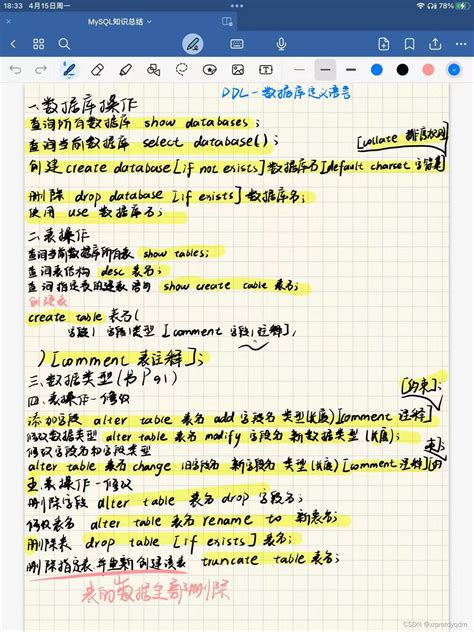 18:33 4月15日周一
81%
MySQL知识总结
DDL-数据库定义语言
一.数据库操作
查询所有数据库 show databases;
查询当前数据库 select database();
[collate 排序规则]
创建 create database [if not exists] 数据库名 [default charset 字符集]
删除 drop database [if exists] 数据库名;
使用 use 数据库名;
二.表操作
查询当前数据库所有表 show tables;
查询表结构 desc 表名;
查询指定表的建表语句 show create table 表名;
创建表
create table 表名(
字段1 字段1类型 [comment 字段1注释],
)[comment 表注释];
三.数据类型(书P91)
四.表操作-修改
[约束];
添加字段 alter table 表名 add 字段名 类型(长度)[comment 注释]
修改数据类型 alter table 表名 modify 字段名 新数据类型(长度);
修改字段名和字段类型
alter table 表名 change 旧字段名 新字段名 类型(长度)[comment 注释][约
束];
五.表操作-修改
删除字段 alter table 表名 drop 字段名;
修改表名 alter table 表名 rename to 新表名;
删除表 drop table [if exists] 表名;
删除指定表并重新创建该表 truncate table 表名;
表的数据全部删除